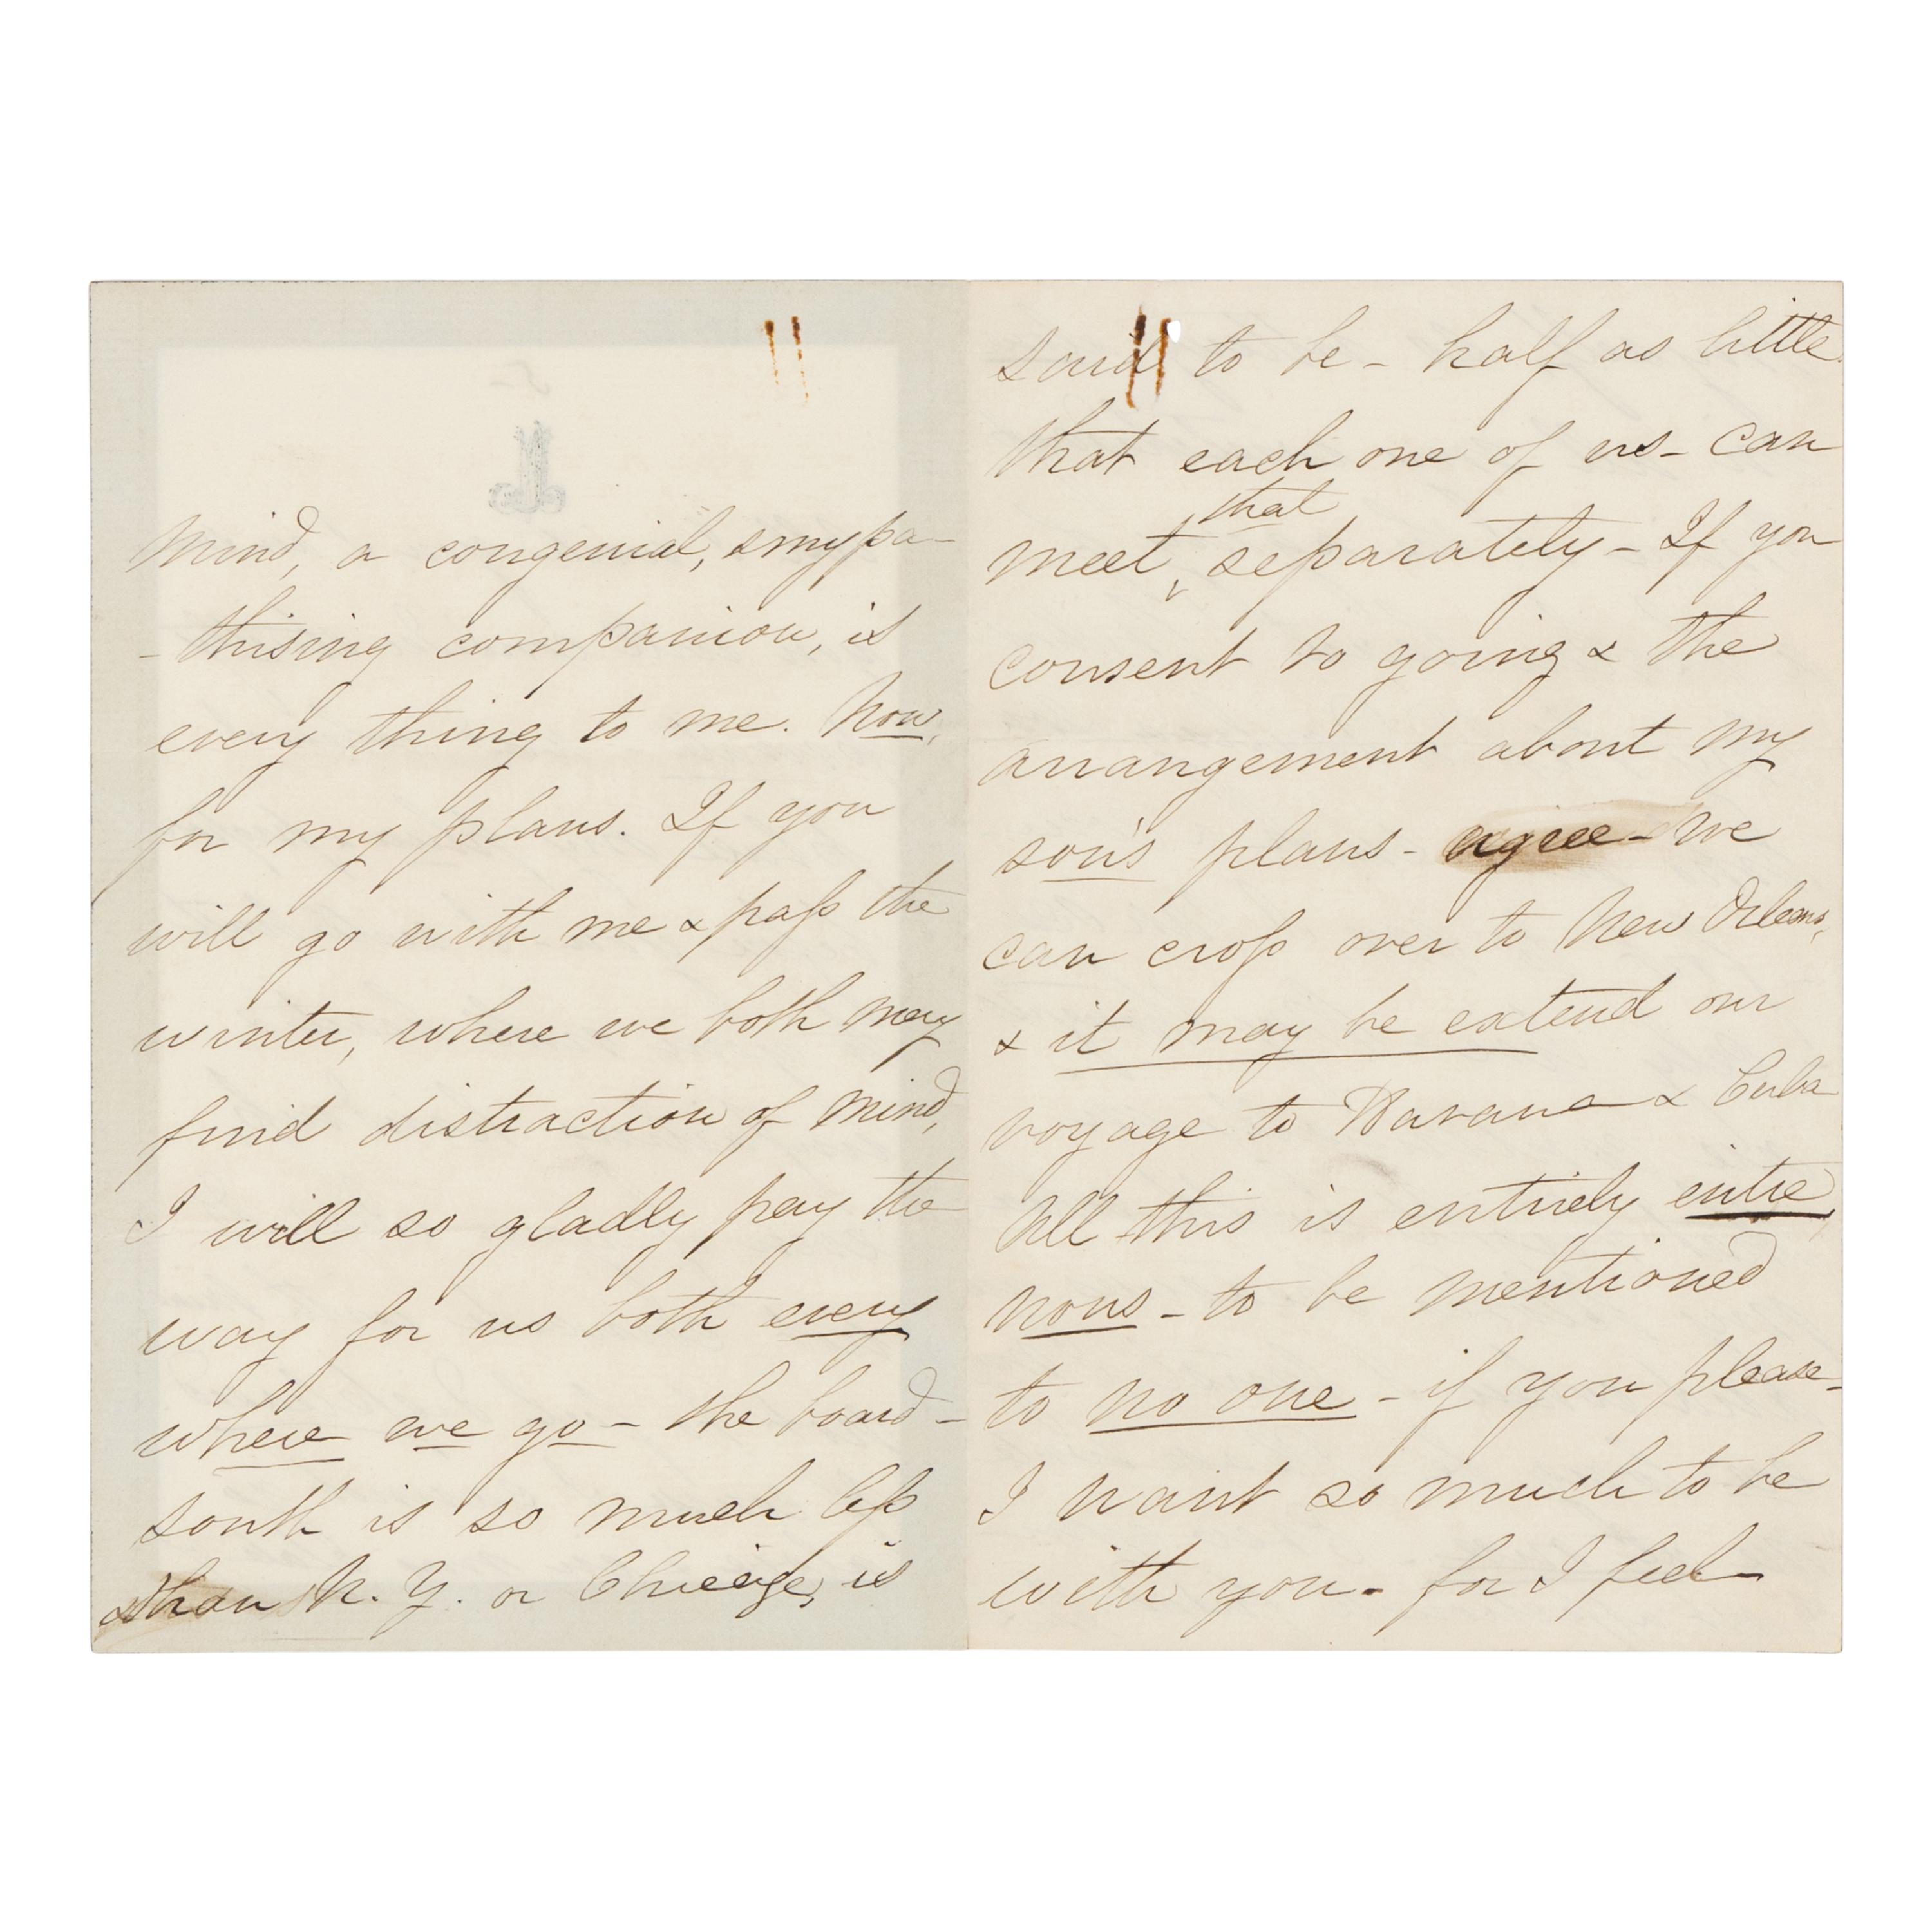 mind, a congenial, smypa-
-thising companion, is
every thing to me. Now,
for my plans. If you
will go with me & pass the
winter, where we both may
find distraction of mind,
I will so gladly pay the
way for us both every
where we go - the board -
south is so much less
than N. Y. or Chicago, is
said to be - half as little
that each one of us - can
that
meet, separately - If you
consent to going & the
arrangement about my
son's plans - agree - we
can cross over to New Orleans,
& it may be extend our
voyage to Havana & Cuba
All this is entirely entre
nous - to be mentioned
to no one - if you please -
I want so much to be
with you - for I feel